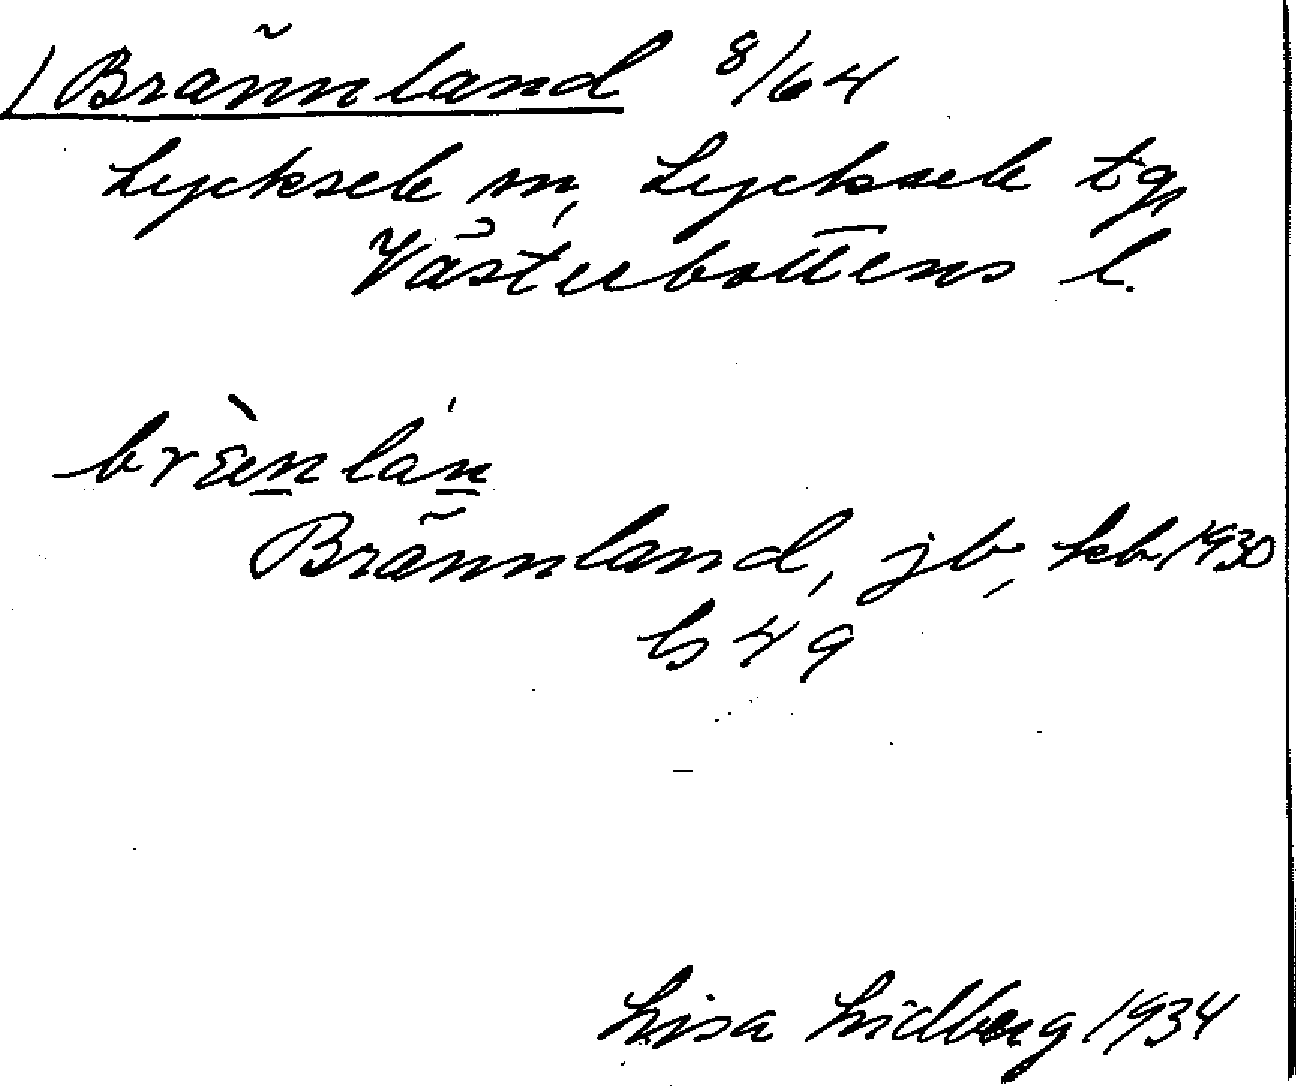 / Brännland 8/64
Lycksele sn, Lycksele tg,
Västerbottens l.
bræ̀nlán
Brännland, jb, kb 1930
b 49
Lisa Lidberg 1934